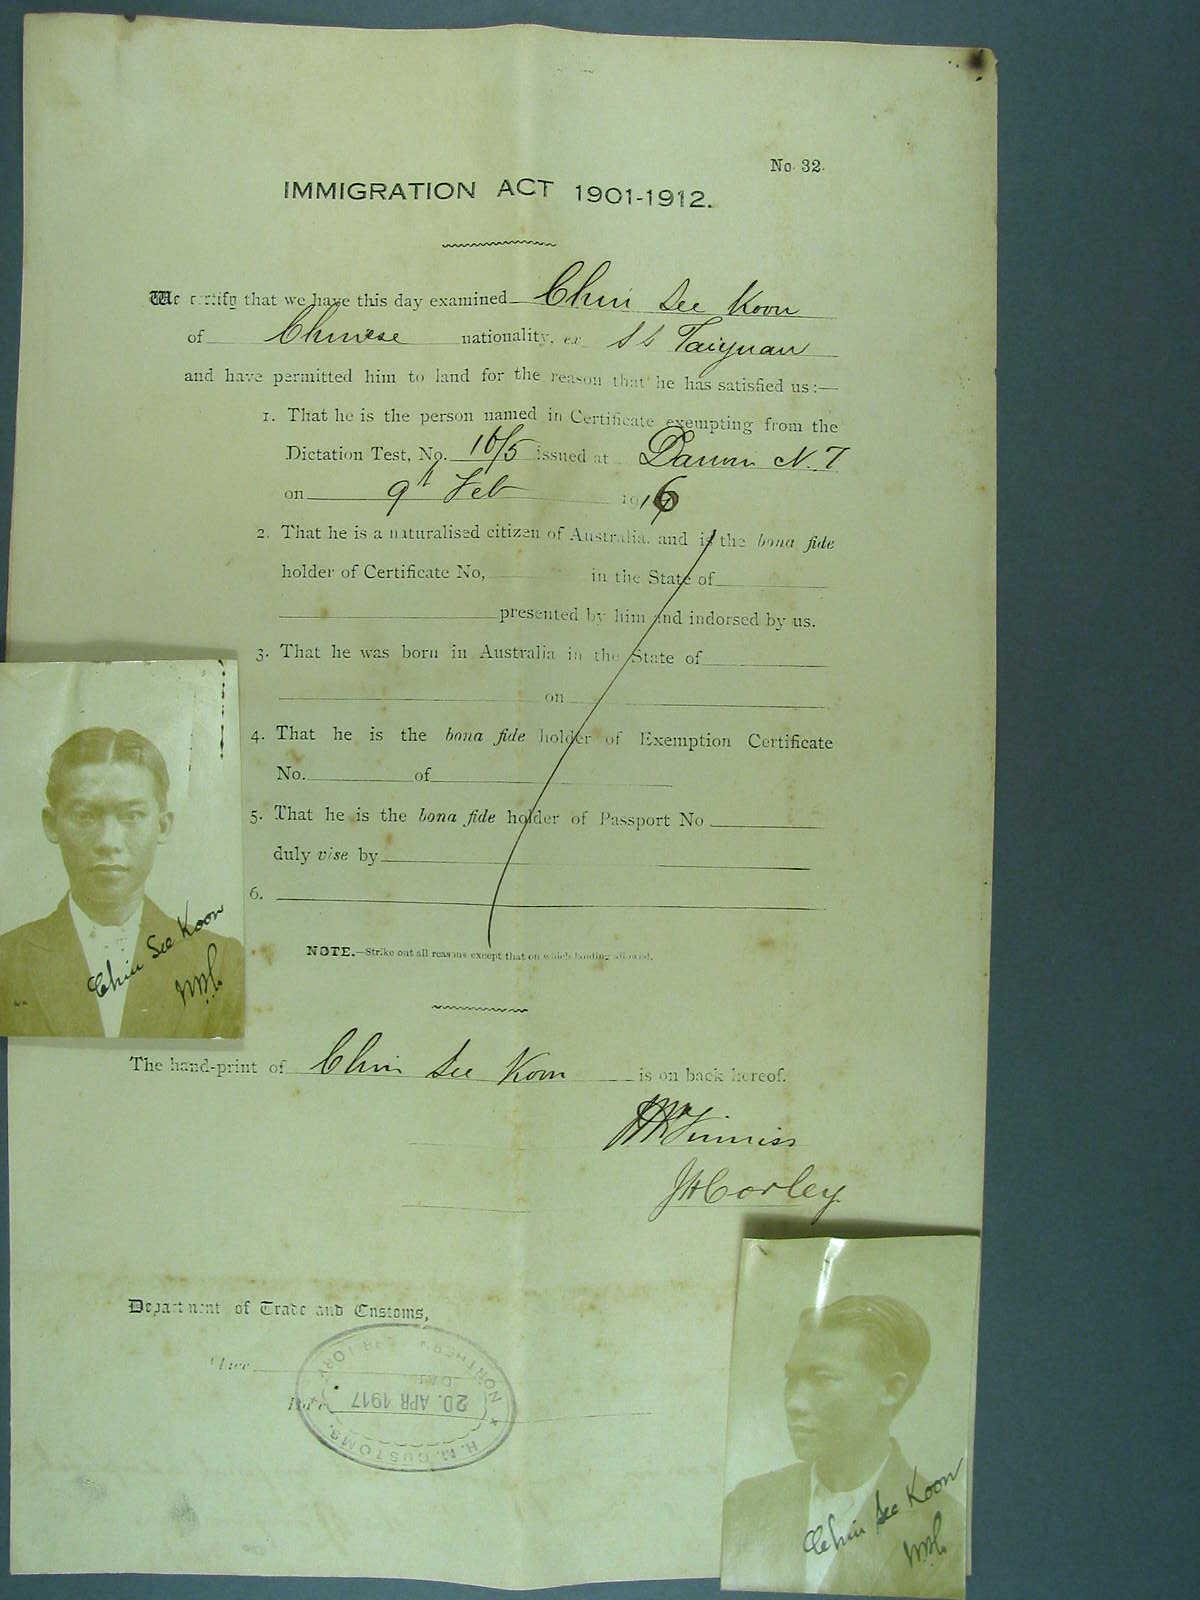 No. 32.
IMMIGRATION ACT 1901-1912.
We certify that we have this day examined Chin See Koon
of Chinese nationality, ex SS Taiyuan
and have permitted him to land for the reason that he has satisfied us:—
1. That he is the person named in Certificate exempting from the
Dictation Test, No. 16/5 issued at Darwin N.T
on 9th Feb 1916
2. That he is a naturalised citizen of Australia, and is the bona fide
holder of Certificate No, in the State of
presented by him and indorsed by us.
3. That he was born in Australia in the State of
on
4. That he is the bona fide holder of Exemption Certificate
No. of
5. That he is the bona fide holder of Passport No
duly vise by
6.
NOTE.—Strike out all reasons except that on which landing allowed.
Chin See Koon
The hand-print of Chin See Koon is on back hereof.
Finniss
JHCorley
Department of Trade and Customs,
Place
Date
H.M. CUSTOMS. NORTHERN TERRITORY
20. APR 1917
Chin See Koon